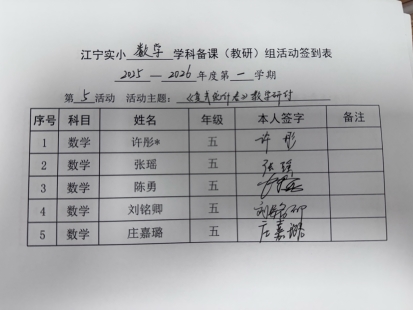 江宁实小 数学 学科备课（教研）组活动签到表
2025 — 2026 年度第 一 学期
第 5 活动 活动主题：《复式统计表》教学研讨
序号 科目 姓名 年级 本人签字 备注
1 数学 许彤* 五 许彤
2 数学 张瑶 五 张瑶
3 数学 陈勇 五
4 数学 刘铭卿 五 刘铭卿
5 数学 庄嘉璐 五 庄嘉璐